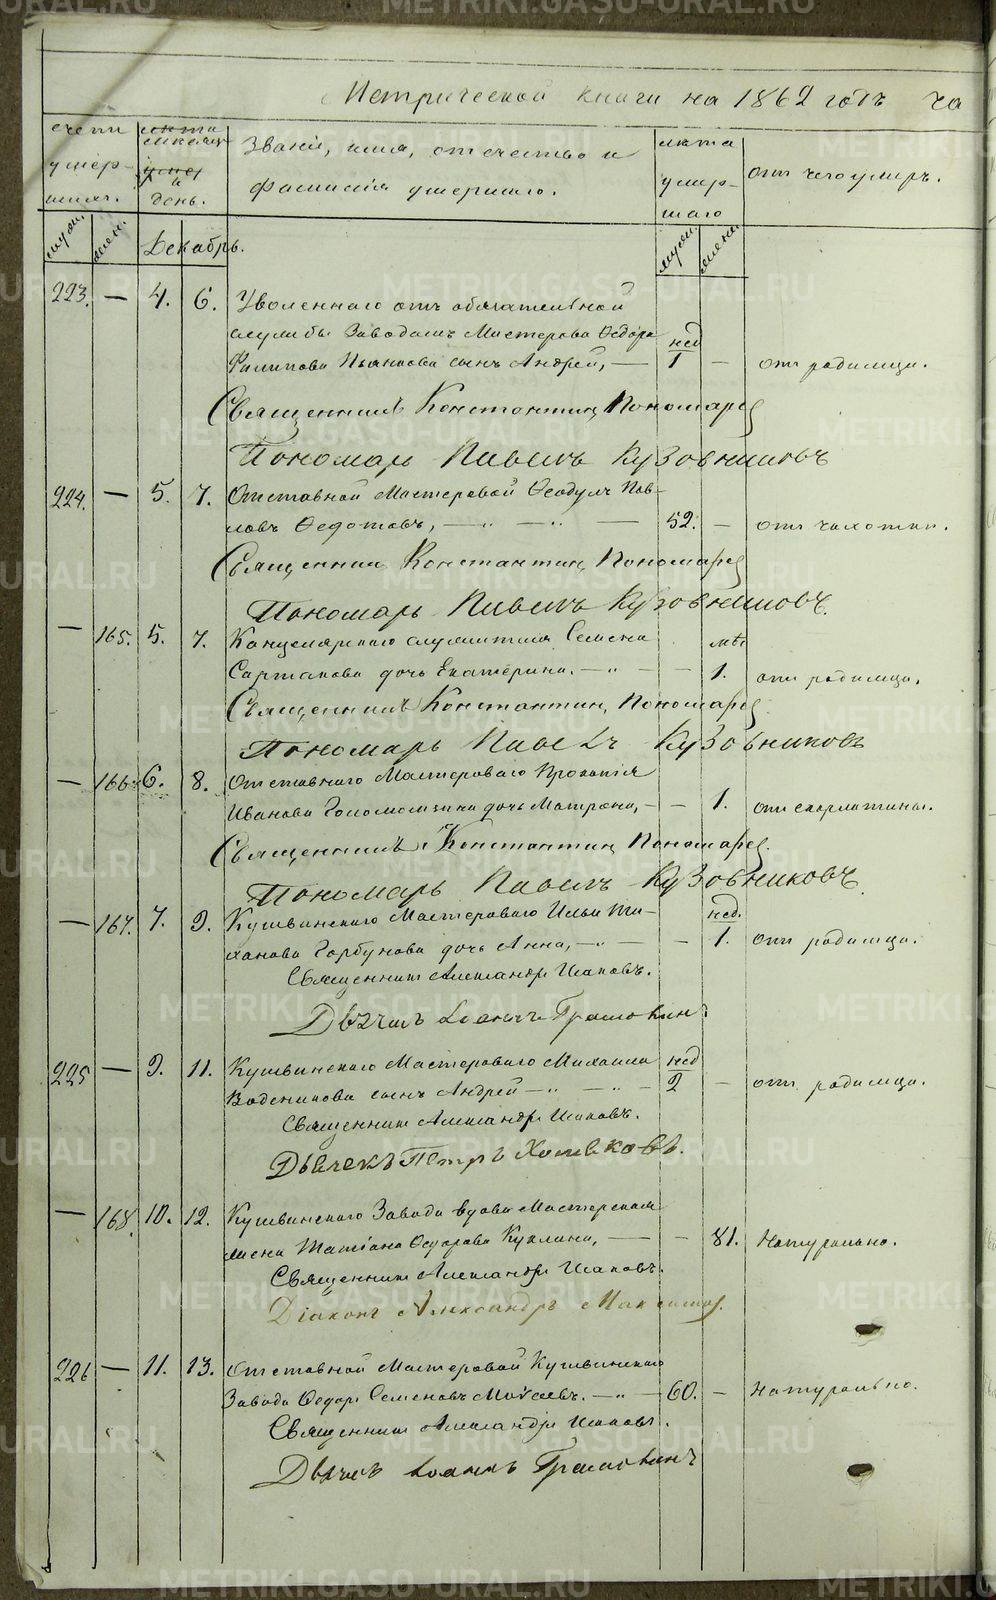 Метрической книги на 1862 годъ ча
счетъ умер-шихъ. муж. жен.
мѣсяцъ и день. Декабрь.
Званіе, имя, отечество и
фамилія умершаго.
лѣта умер-шаго муж. жен.
отъ чего умеръ.
223. — 4. 6. Уволеннаго отъ обязательной
службы Заводамъ Мастероваго Ѳедора нед
Филипова Пьянкова сынъ Андрей, — 1 — отъ родимца.
Священникъ Константинъ Пономаревъ
Пономарь Павелъ Кузовниковъ
224. — 5. 7. Отставной Мастеровой Ѳеодулъ Пав-
ловъ Ѳедотовъ, — „ — „ — 52. — отъ чахотки.
Священникъ Константинъ Пономаревъ
Пономарь Павелъ Кузовниковъ.
— 165. 5. 7. Канцелярскаго служителя Семена мѣс
Сартакова дочь Екатерина. — „ — — 1. отъ родимца.
Священникъ Константинъ Пономаревъ
Пономарь Павелъ Кузовниковъ
— 166. 6. 8. Отставнаго Мастероваго Прокопія
Иванова дочь Матрона, — — 1. отъ скарлатины.
Священникъ Константинъ Пономаревъ.
Пономарь Павелъ Кузовниковъ.
— 167. 7. 9. Кушвинскаго Мастероваго Ильи Ти- нед.
ханова Горбунова дочь Анна, — „ — — 1. отъ родимца.
Священникъ Александръ
Дьячекъ Іоаннъ
225 — 9. 11. Кушвинскаго Мастероваго Михаила нед
Воденикова сынъ Андрей — „ — „ — 2 — отъ родимца.
Священникъ Александръ
Дьячекъ Петръ Хомяковъ.
— 168. 10. 12. Кушвинскаго Завода вдова Мастерская
жена Татіана Ѳедорова Куклина, — — 81. Натурально.
Священникъ Александръ
Діаконъ Александръ
226 — 11. 13. Отставной Мастеровой Кушвинскаго
Завода Ѳедоръ Семеновъ Мокеевъ. — „ — 60. — Натурально.
Священникъ Александръ
Дьячекъ Іоаннъ
METRIKI.GASO-URAL.RU